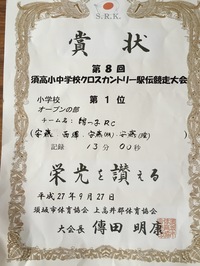 S.R.K.
賞状
第8回
須高小中学校クロスカントリー駅伝競走大会
小学校 第1位
オープンの部
チーム名
RC
記録 13分00秒
栄光を讃える
平成27年9月27日
須坂市体育協会 上高井郡体育協会
大会長 傳田 明康